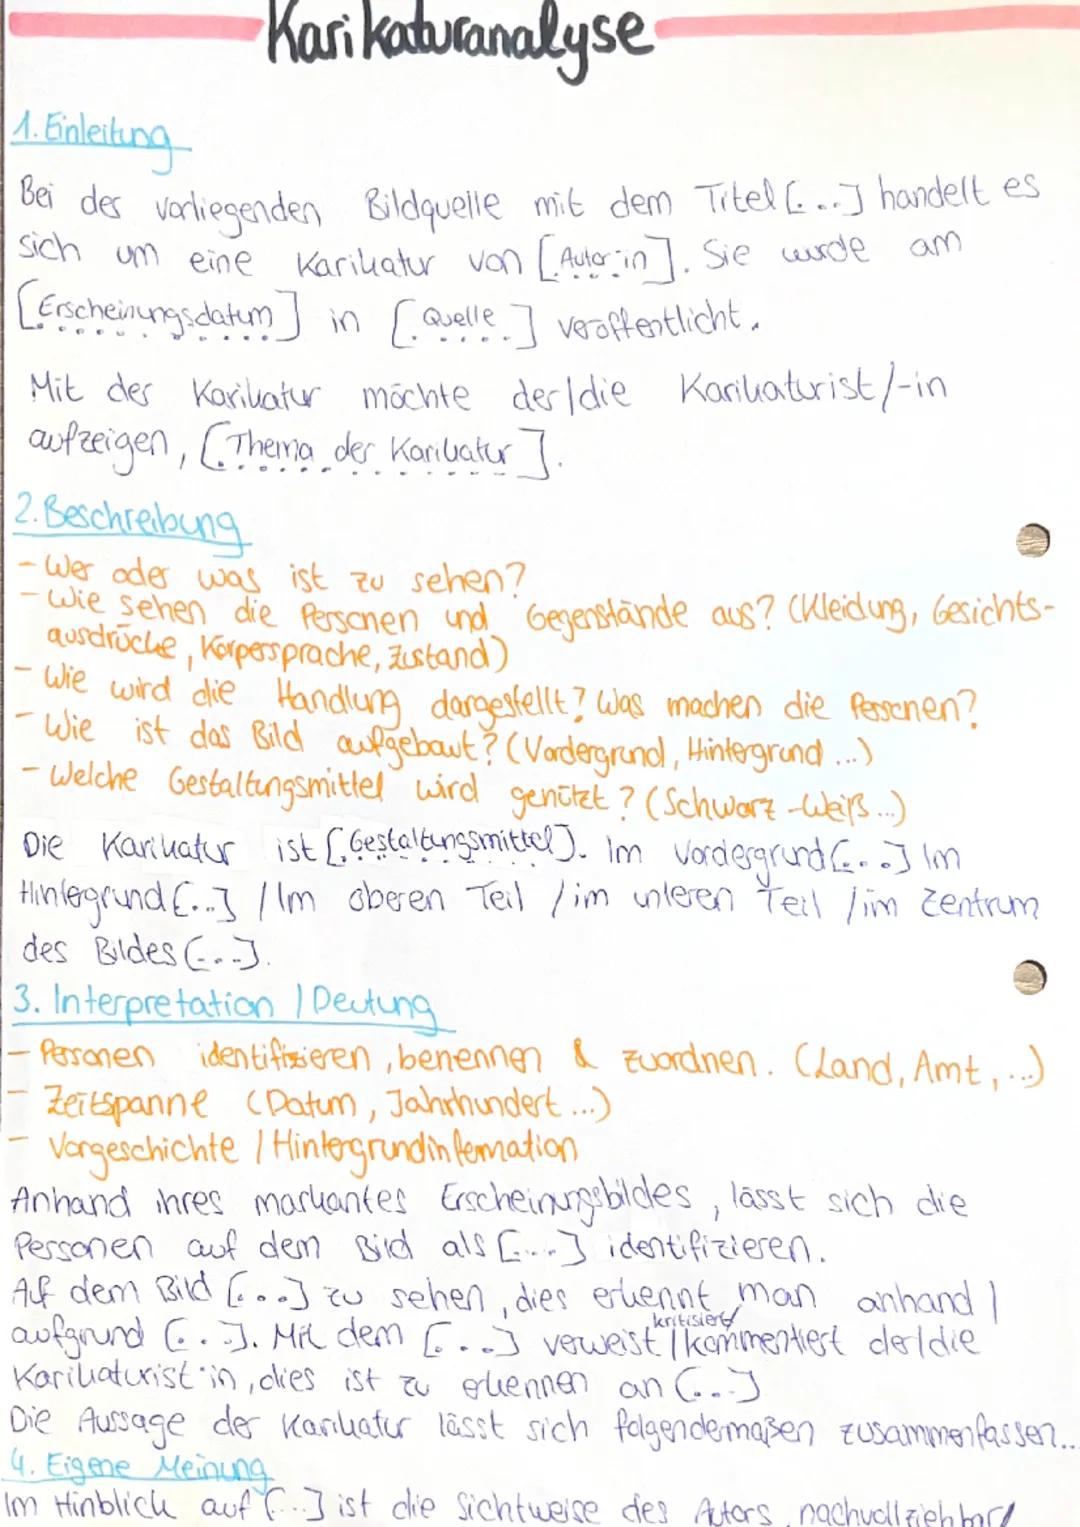 Karikaturanalyse
1. Einleitung
Bei der vorliegenden Bildquelle mit dem Titel [...] handelt es
sich um eine Karikatur von [Autor:in]. Sie wurde am
[Erscheinungsdatum] in [Quelle] veröffentlicht.
Mit der Karikatur möchte der/die Karikaturist/-in
aufzeigen, [Thema der Karikatur].
2. Beschreibung
- Wer oder was ist zu sehen?
- Wie sehen die Personen und Gegenstände aus? (Kleidung, Gesichts-
ausdrücke, Körpersprache, Zustand)
- Wie wird die Handlung dargestellt? Was machen die Personen?
- Wie ist das Bild aufgebaut? (Vordergrund, Hintergrund ...)
- Welche Gestaltungsmittel wird genützt? (Schwarz-Weiß...)
Die Karikatur ist [Gestaltungsmittel]. Im Vordergrund [...] Im
Hintergrund [...] / Im oberen Teil / im unteren Teil / im Zentrum
des Bildes [...].
3. Interpretation / Deutung
- Personen identifizieren, benennen & zuordnen. (Land, Amt, ...)
- Zeitspanne (Datum, Jahrhundert ...)
- Vorgeschichte / Hintergrundinformation
Anhand ihres markantes Erscheinungsbildes, lässt sich die
Personen auf dem Bild als [...] identifizieren.
Auf dem Bild [...] zu sehen, dies erkennt man anhand /
aufgrund [...]. Mit dem [...] verweist / kritisiert / kommentiert der/die
Karikaturist:in, dies ist zu erkennen an [...]
Die Aussage der Karikatur lässt sich folgendermaßen zusammenfassen...
4. Eigene Meinung
Im Hinblick auf [...] ist die Sichtweise des Autors nachvollziehbar/